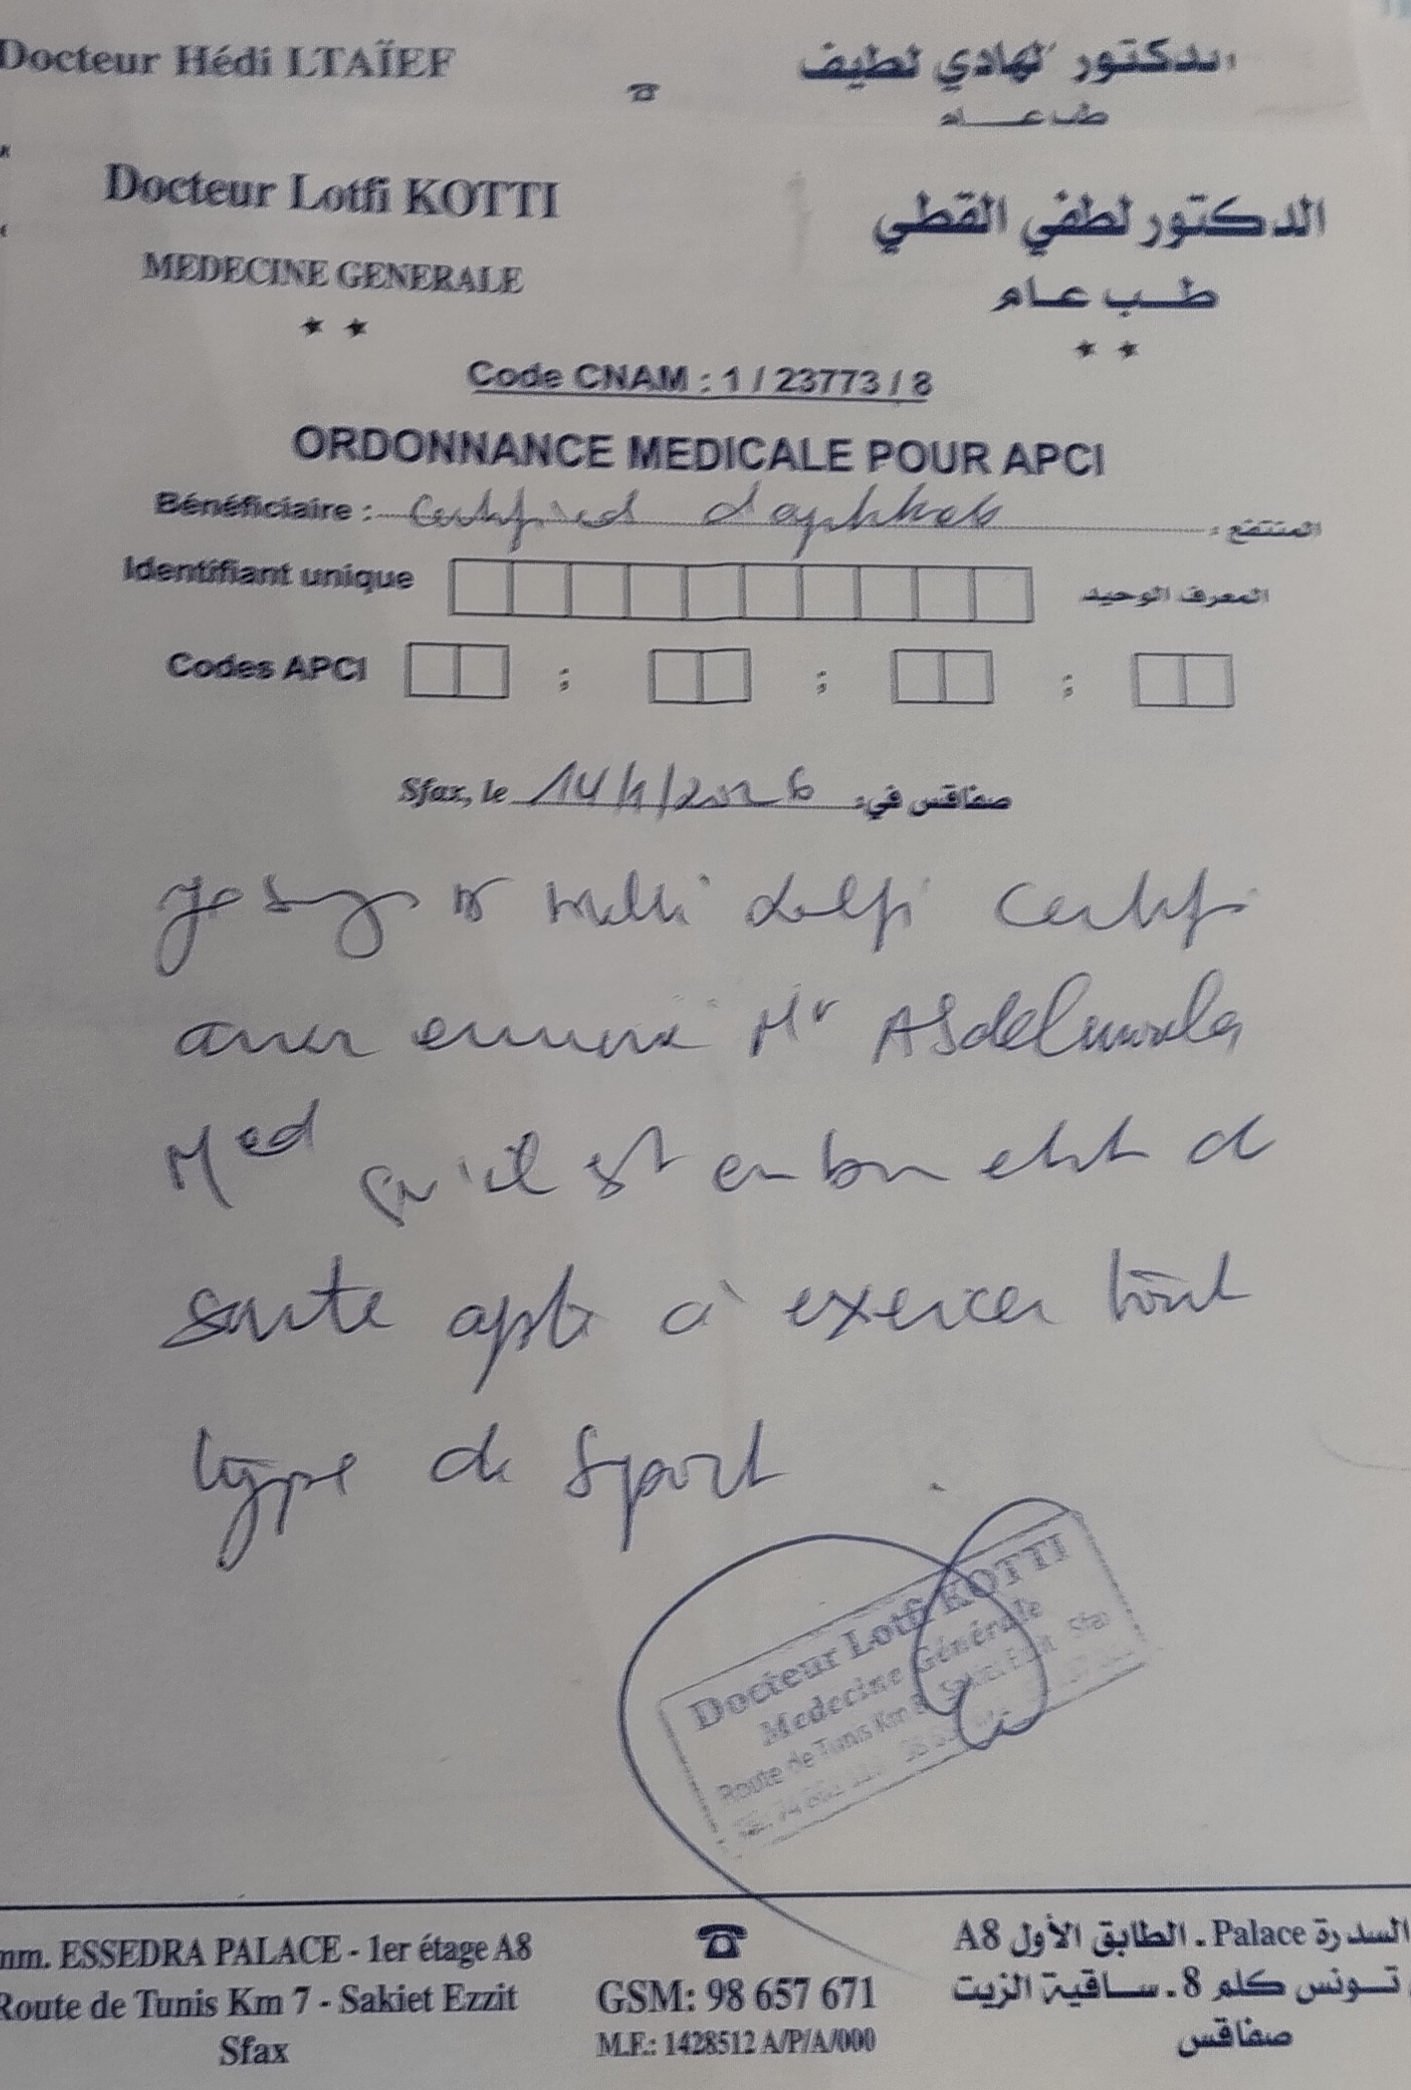 Docteur Hédi LTAÏEF
الدكتور الهادي لطيف
طب عام
Docteur Lotfi KOTTI
الدكتور لطفي القطي
MEDECINE GENERALE
طب عام
Code CNAM : 1 / 23773 / 8
ORDONNANCE MEDICALE POUR APCI
Bénéficiaire : Certificat d'aptitude المنتفع :
Identifiant unique المعرف الوحيد
Codes APCI ; ; ;
Sfax, le 14/1/2026 صفاقس في:
Je Certifi
avoir Mr Abdelmoula
Med qu'il est en bon etat de
sante apte à exercer tout
type de Sport
Docteur Lotfi KOTTI
Medecine Générale
Route de Tunis Km 8 Sakiet Ezzit Sfax
mm. ESSEDRA PALACE - 1er étage A8
Route de Tunis Km 7 - Sakiet Ezzit
Sfax
GSM: 98 657 671
M.F.: 1428512 A/P/A/000
السدرة Palace . الطابق الأول A8
تونس كلم 8 . ساقية الزيت
صفاقس